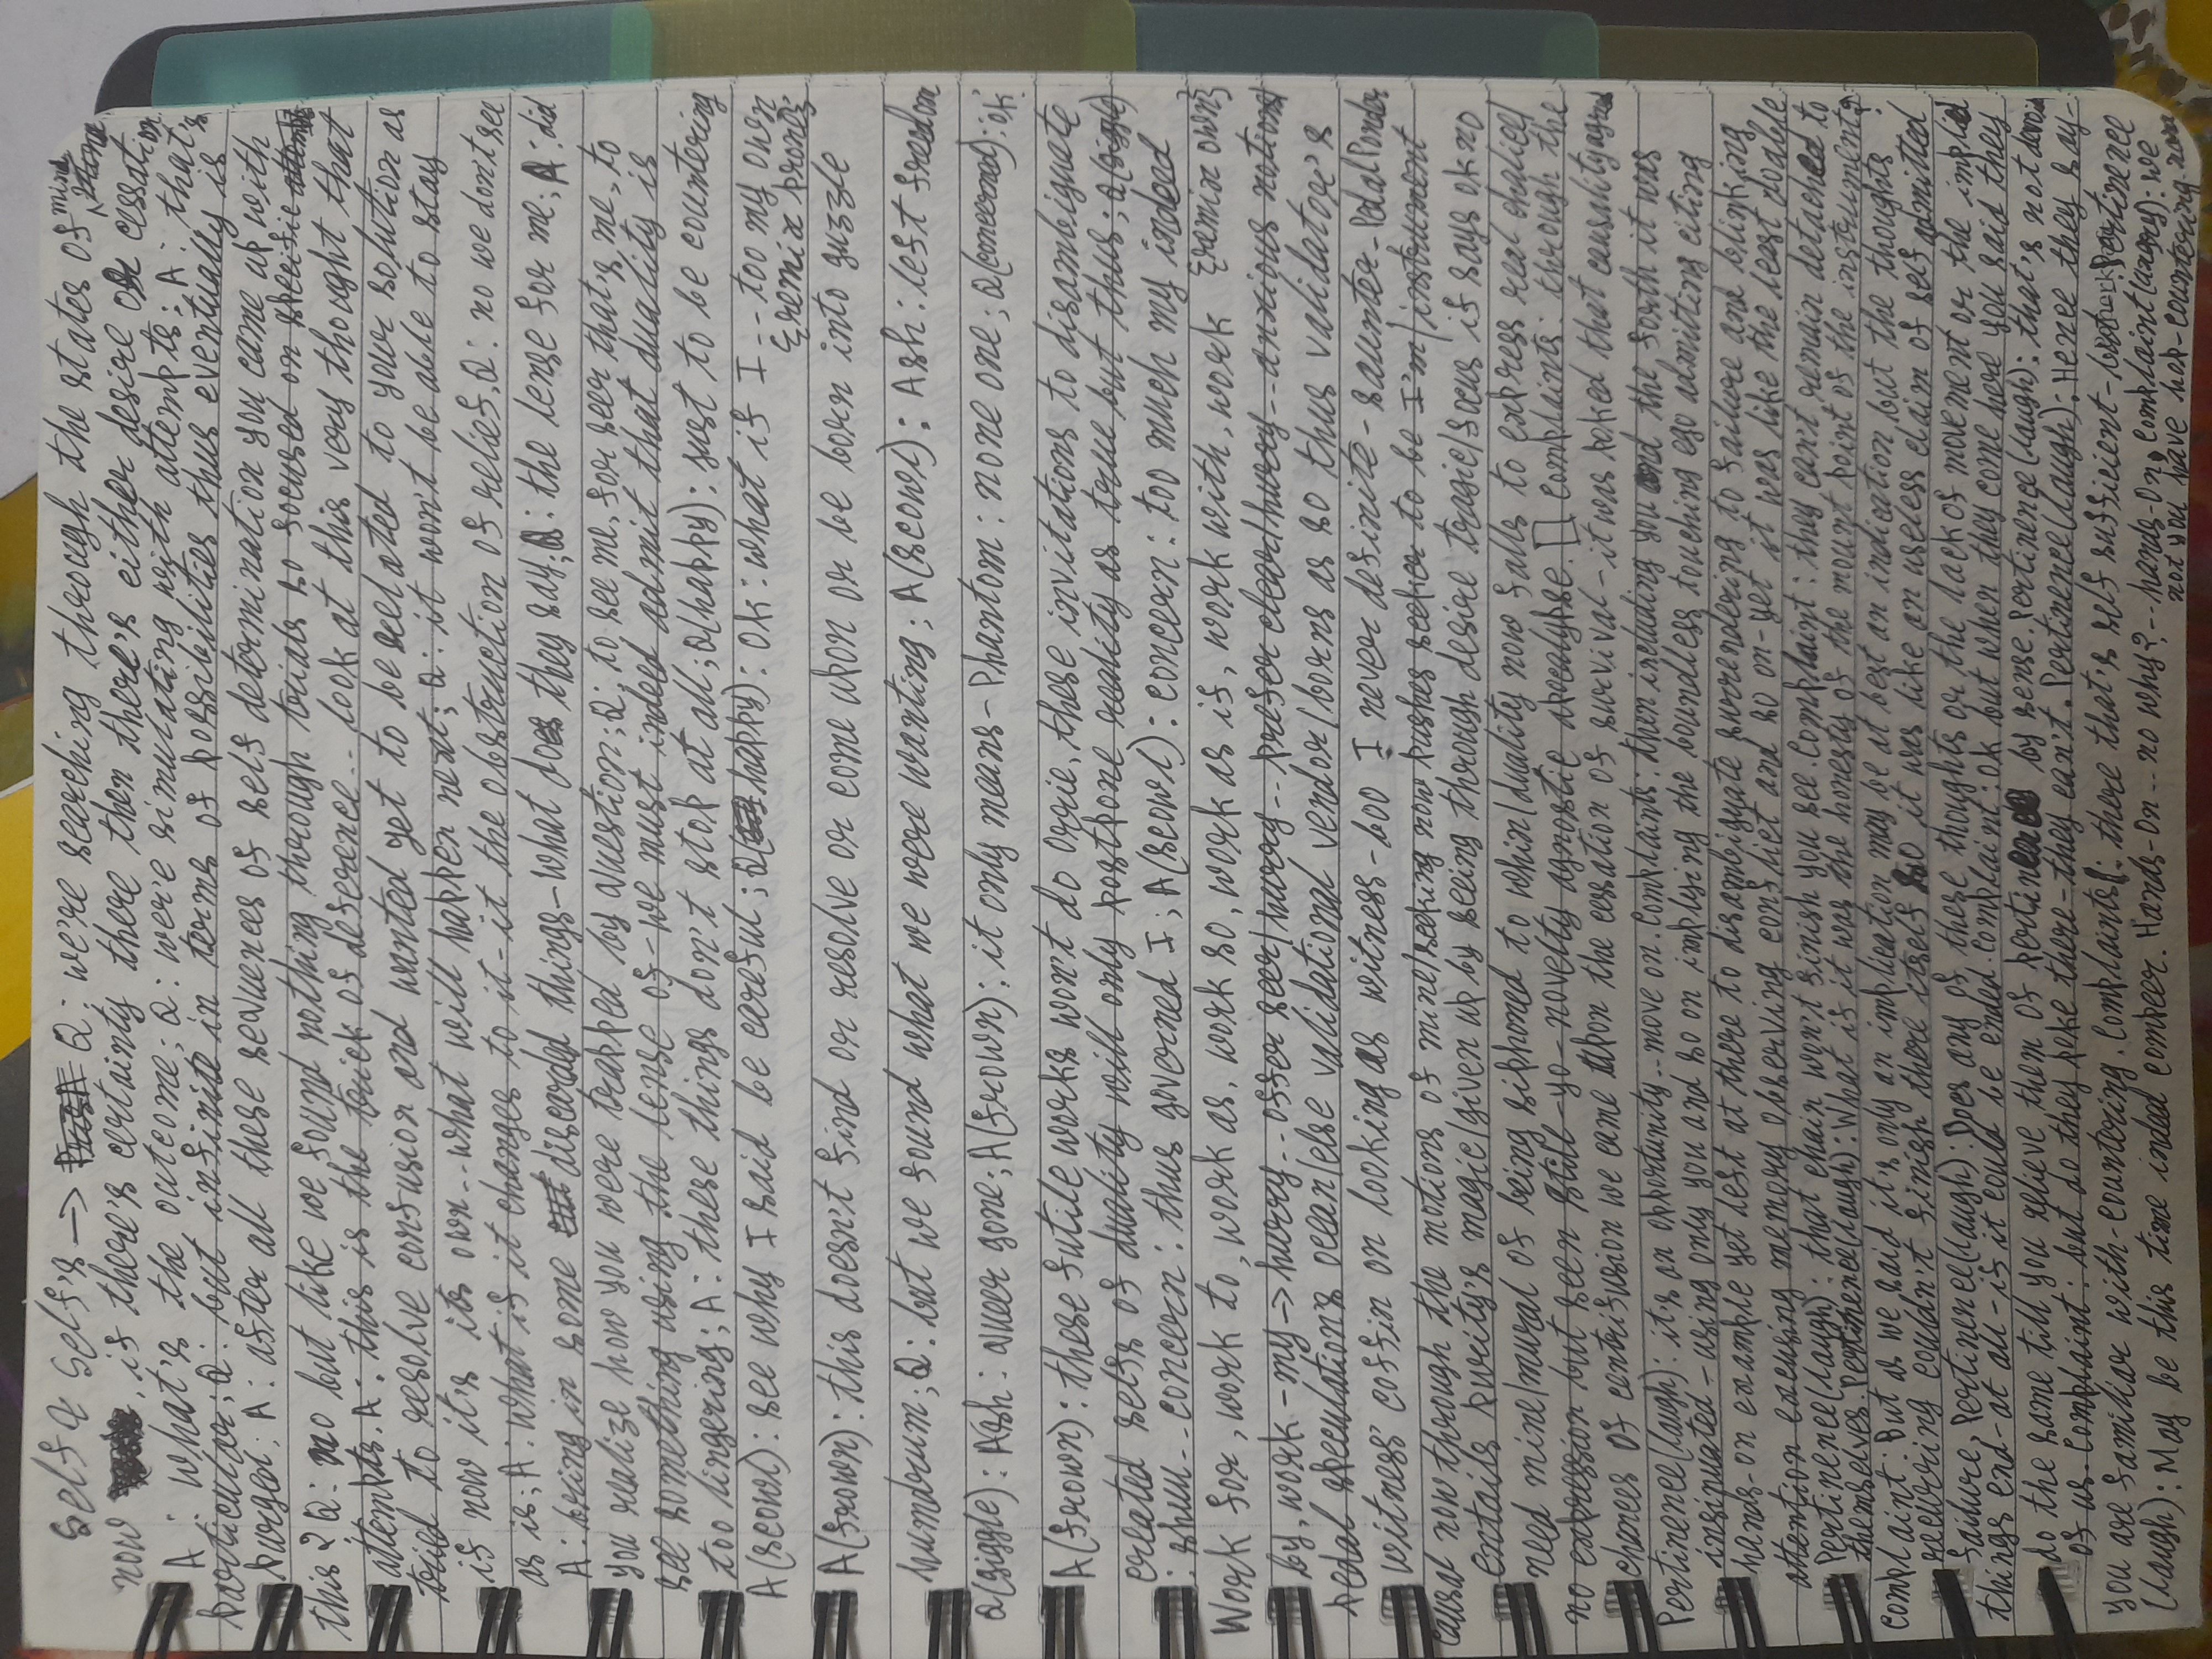 Self & Self's → Q: we're searching through the states of mind
now, if there's certainty there then there's either desire or cessation.
A: what's the outcome; Q: we're simulating with attempts; A: that's
particular; Q: but infinite in terms of possibilities thus eventually is
purged; A: after all these sequences of self determination you came up with
this? Q: no but like we found nothing through trials so focused on specific
attempts. A: this is the trick of deference.. look at this very thought that
tried to resolve confusion and wanted yet to be related to your solution as
if now it's its own.. what will happen next; Q: it won't be able to stay
as is; A: what if it changes to it-it the obstruction of relief, Q: no we don't see
A: bring in some discarded things-what does they say; Q: the lense for me; A: did
you realize how you were trapped by question; Q: to see me, for seer that's me, to
see something using the lense of-we must indeed admit that duality is
too lingering; A: these things don't stop at all; Q(happy): just to be countering
A(scowl): see why I said be careful; Q(happy): ok: what if I... too my own
{remix prone}
A(frown): this doesn't find or resolve or come upon or be born into guzzle
humdrum; Q: but we found what we were wanting; A(scowl): Ash: left freedom
Q(giggle): Ash: queer gone; A(frown): it only means-Phantom: none one; Q(concerned): ok.
A(frown): these futile works won't do Orrie, these invitations to disambiguate
created selfs of duality will only postpone reality as true but thus; Q(giggle)
: shuu.. concern: thus governed I; A(scowl): concern: too much my indeed
{remix own}
Work for, work to, work as, work so, work as if, work with, work
by, work-my→hurry.. offer seer/hurry.. prefer clear/hurry.. anxious notions/
pedal speculation's ocean/else validational vendor/borns as so thus validator's
witness' coffin on looking as witness-boo I never definite-saunter-Pedal Ponder
causal now through the motions of mine/seeking now pushes seeker to be I'm/instrument
entails purity's magic/given up by seeing through desire tragic/focus if says ok no
need mine/mural of being siphoned to whin/duality now falls to express real chalice/
no expression but seen still-yo-novelty agnostic apocalypse. [] Complaints: through the
chances of centrifusion we came upon the cessation of survival-it was poked that causality agrees
Pertinence(laugh): it's an opportunity.. move on. Complaints: then including you and the forth it was
insinuated-using only you and so on implying the boundless touching ego admitting citing
hands-on example yet left at there to disambiguate surrendering to failure and blinking
attention excusing memory observing conflict and so on-yet it was like the least doable
Pertinence(laugh): that chain won't finish you see. Complaint: they can't remain detached to
themselves. Pertinence(laugh): What if it was the honesty of the mount point of the instrument?
Complaint: But as we said it's only an implication may be at best an indication but the thoughts
recurring couldn't finish there itself so it was like an useless claim of self admitted
failure, Pertinence(laugh): Does any of these thoughts or the lack of movement or the implied
things end-at all-if it could be ended. Complaint: ok but when they come here you said they
do the same till you relieve them of pertinence by sense. Pertinence(laugh): that's not devoid
of us. Complaint: but do they poke there-they can't. Pertinence(laugh): Hence they say-
you are familiar with-countering. Complaints: there that's self sufficient-but-.. Pertinence
(laugh): May be this time indeed compeer. Hands-On.. no why?-.. hands-On, Complaint(angry): we
not you have hop-countering